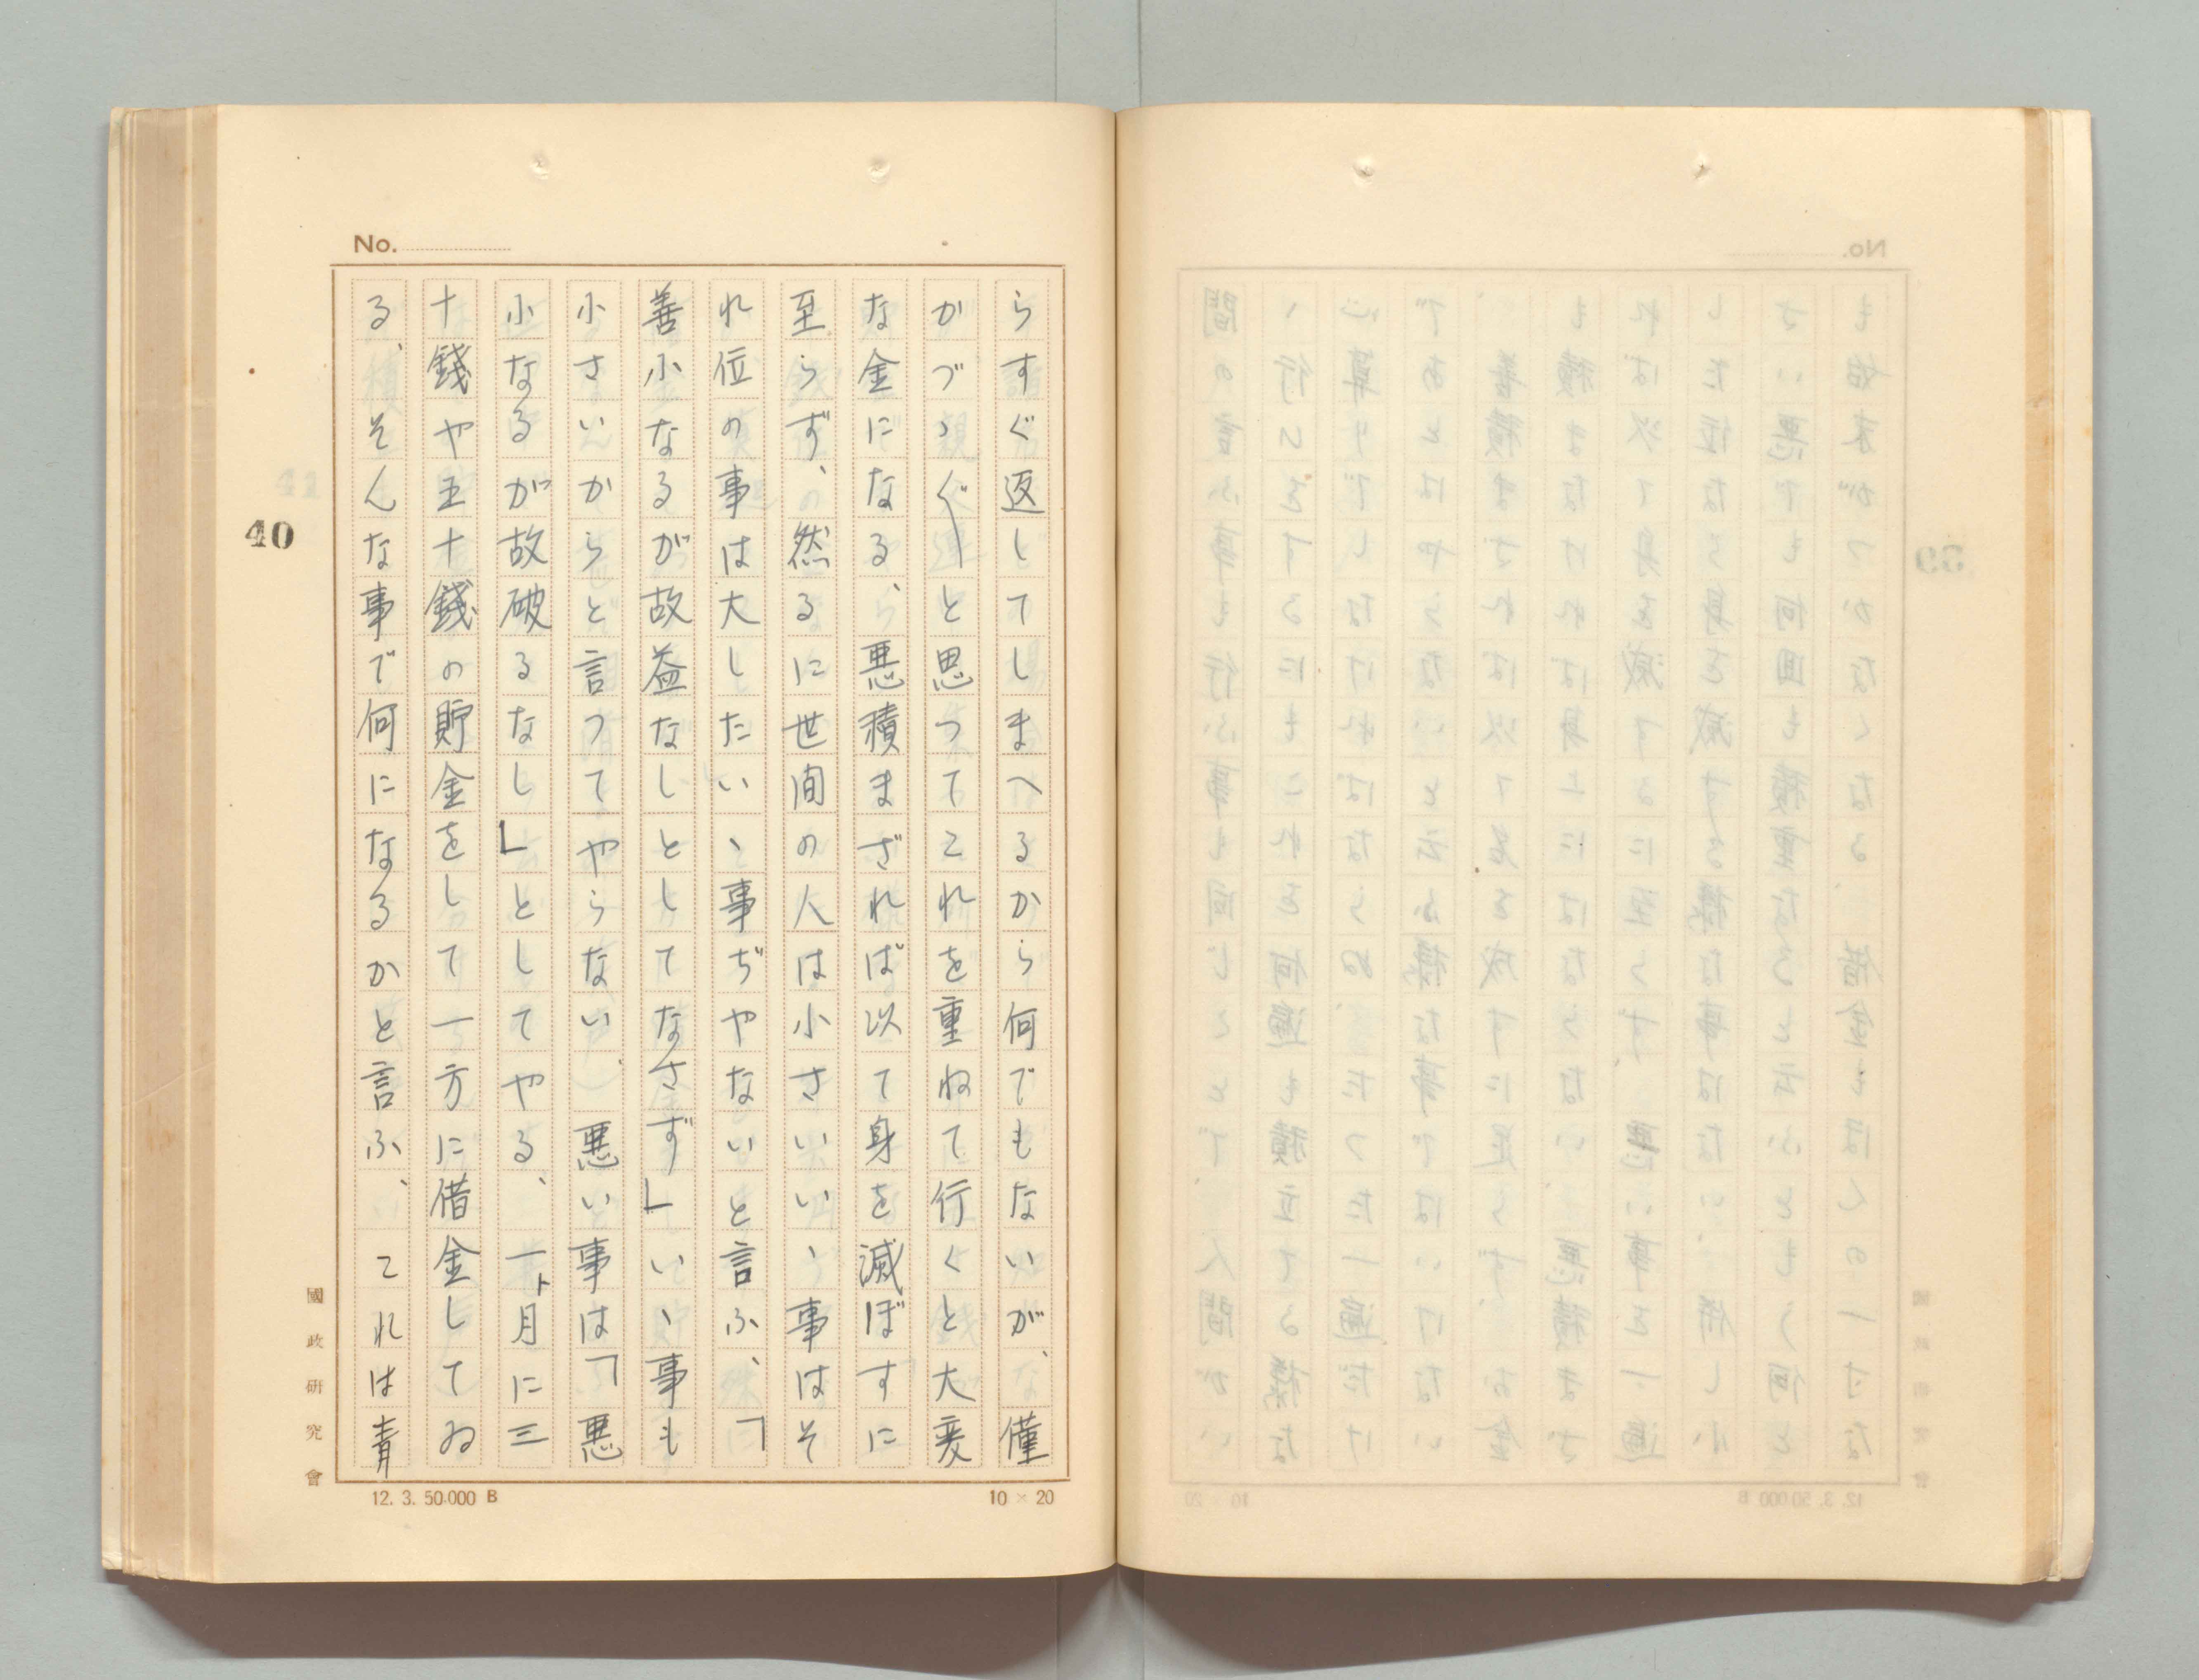 No.
らすぐ返してしまへるから何でもないが、僅
かづゝ〱と思つてこれを重ねて行くと大変
な金になる、悪積まざれば以て身を滅ぼすに
至らず、然るに世間の人は小さいいゝ事はそ
れ位の事は大したいゝ事ぢやないと言ふ、「
善小なるが故益なしとしてなさず」いゝ事も
小さいからと言つてやらない、悪い事は「悪
小なるが故破るなし」としてやる、一ト月に三
十錢や五十錢の貯金をして一方に借金してゐ
る、そんな事で何になるかと言ふ、これは青
40
國政研究會
12. 3. 50.000 B
10 × 20